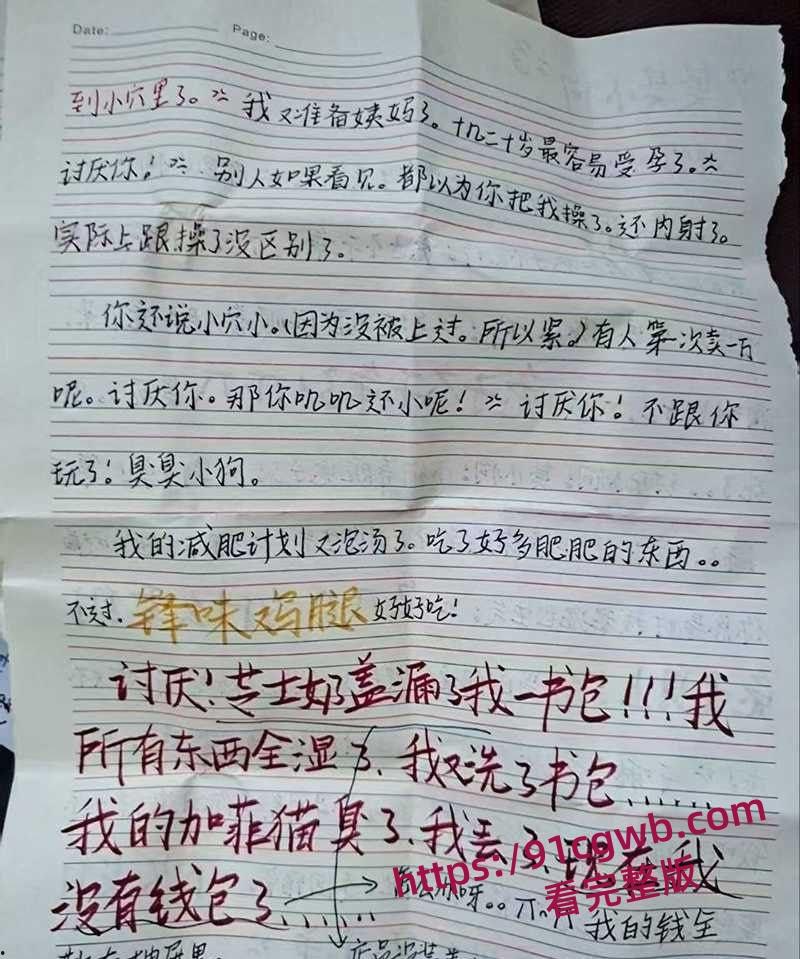 Date:
Page:
到小穴里了。我又准备姨妈了。十九二十岁最容易受孕了。
讨厌你！别人如果看见。都以为你把我操了。还内射了。
实际上跟操了没区别了。
你还说小穴小。（因为没被上过。所以紧。）有人第一次卖一万
呢。讨厌你。那你叽叽还小呢！讨厌你！不跟你
玩了！臭臭小狗。
我的减肥计划又泡汤了。吃了好多肥肥的东西。。
不过.锋味鸡腿好好吃！
讨厌！芝士奶盖漏了我一书包！！！我
所有东西全湿了、我又洗了书包......
我的加菲猫臭了、我丢了、现在我
没有钱包了......
呀。。
我的钱全
https://91cgwb.com
看完整版